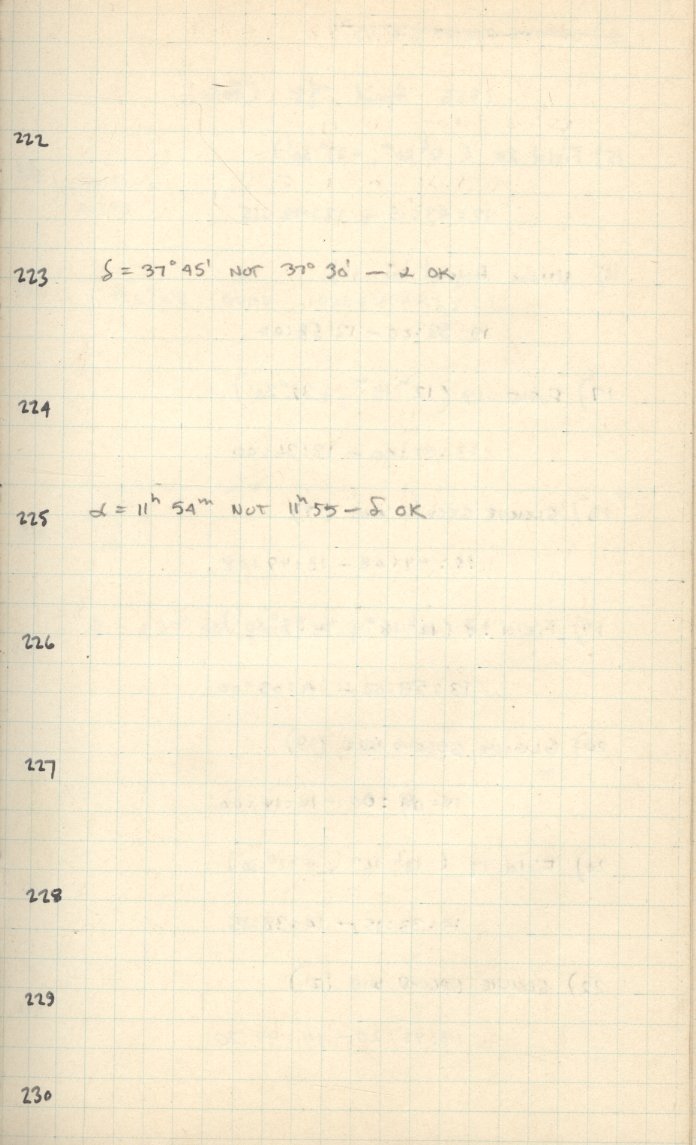 222
223 δ = 37° 45' NOT 37° 30' — α OK
224
225 α = 11ʰ 54ᵐ NOT 11ʰ 55 — δ OK
226
227
228
229
230